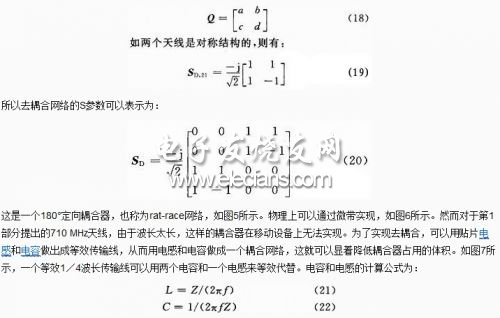 Q = [a b
c d] (18)
如两个天线是对称结构的,则有:
S_{D,21} = -j/√2 [1 1
1 -1] (19)
所以去耦合网络的S参数可以表示为:
S_D = -j/√2 [0 0 1 1
0 0 1 -1
1 1 0 0
1 -1 0 0] (20)
电子发烧友网
www.elecfans.com
这是一个180°定向耦合器,也称为rat-race网络,如图5所示。物理上可以通过微带实现,如图6所示。然而对于第1
部分提出的710 MHz天线,由于波长太长,这样的耦合器在移动设备上无法实现。为了实现去耦合,可以用贴片电
感和电容做出成等效传输线,从而用电感和电容做成一个耦合网络,这就可以显着降低耦合器占用的体积。如图7所
示,一个等效1/4波长传输线可以用两个电容和一个电感来等效代替。电容和电感的计算公式为:
L = Z/(2πf) (21)
C = 1/(2πfZ) (22)